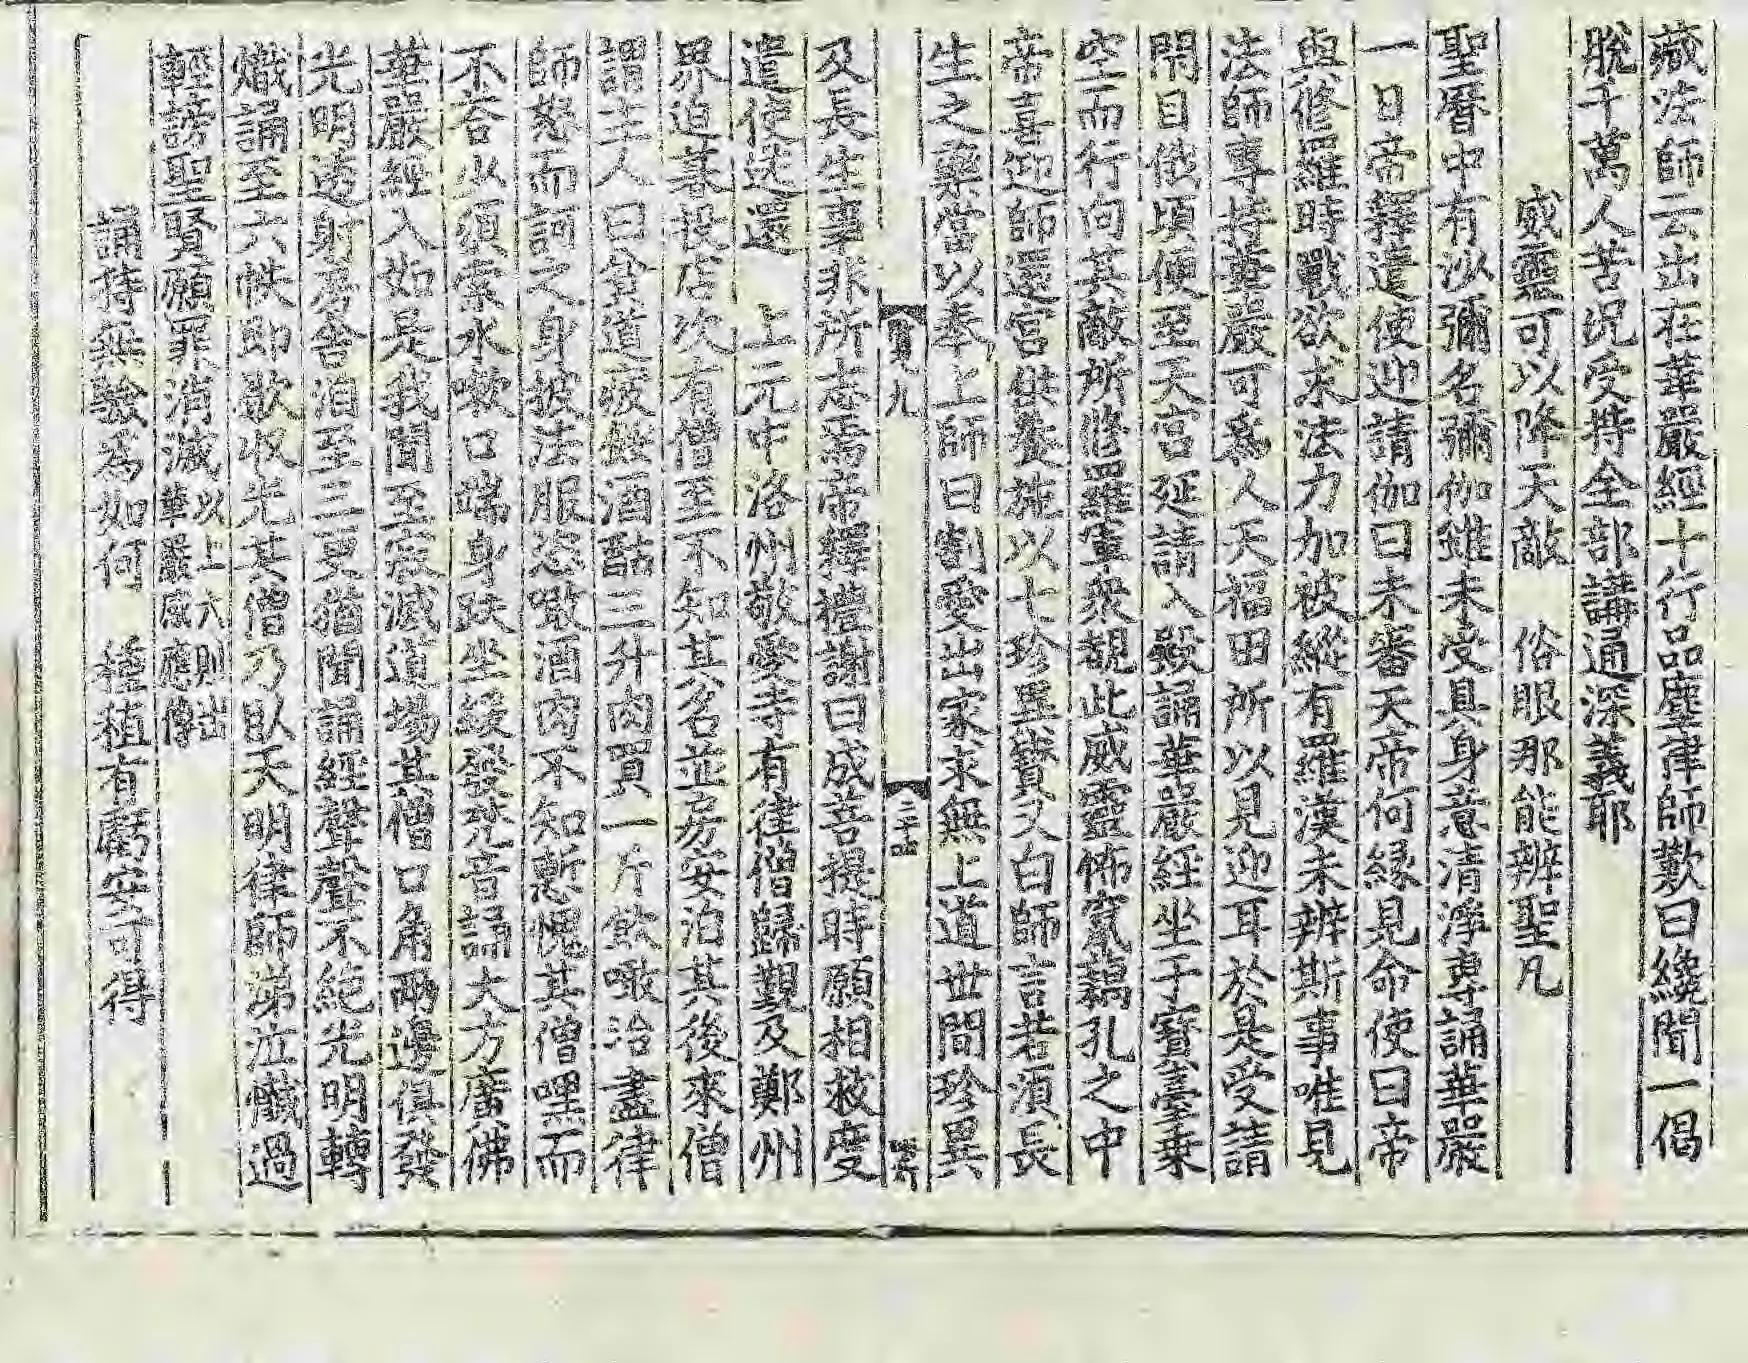 藏法師云出在華嚴經十行品塵律師歎曰纔聞一偈
脫千萬人苦况受持全部講通深義耶
威靈可以降天敵　俗眼那能辨聖凡
聖曆中有沙彌名彌伽雖未受具身意清淨專誦華嚴
一日帝釋遣使迎請伽曰未審天帝何緣見命使曰帝
與修羅時戰欲求法力加被縱有羅漢未辨斯事唯見
法師專持華嚴可爲人天福田所以見迎耳於是受請
閉目俄頃便至天宮延請入殿誦華嚴經坐于寶臺乘
空而行向其敵所修羅軍衆覩此威靈怖竄藕孔之中
帝喜迎師還宮供養施以七珍異寶又白師言若須長
生之藥當以奉上師曰割愛出家求無上道世間珍異
及長生事非所志焉帝釋禮謝曰成菩提時願相救度
遣使送還　上元中洛州敬愛寺有律僧歸覲及鄭州
界迫暮投店次有僧至不知其名並房安泊其後來僧
謂主人曰貧道疲極酒酤三升肉買一斤飲噉洽盡律
師怒而訶之身披法服恣噉酒肉不知慙愧其僧嘿而
不答以須索水漱口端身趺坐緩發梵音誦大方廣佛
華嚴經入如是我聞至寂滅道場其僧口角兩邊俱發
光明透射房舍泊至三更猶聞誦經聲聲不絕光明轉
熾誦至六帙即歇收光其僧乃臥天明律師涕泣懺過
輕謗聖賢願罪消滅以上六則出
華嚴感應傳
誦持無斁為如何　種植有虧安可得